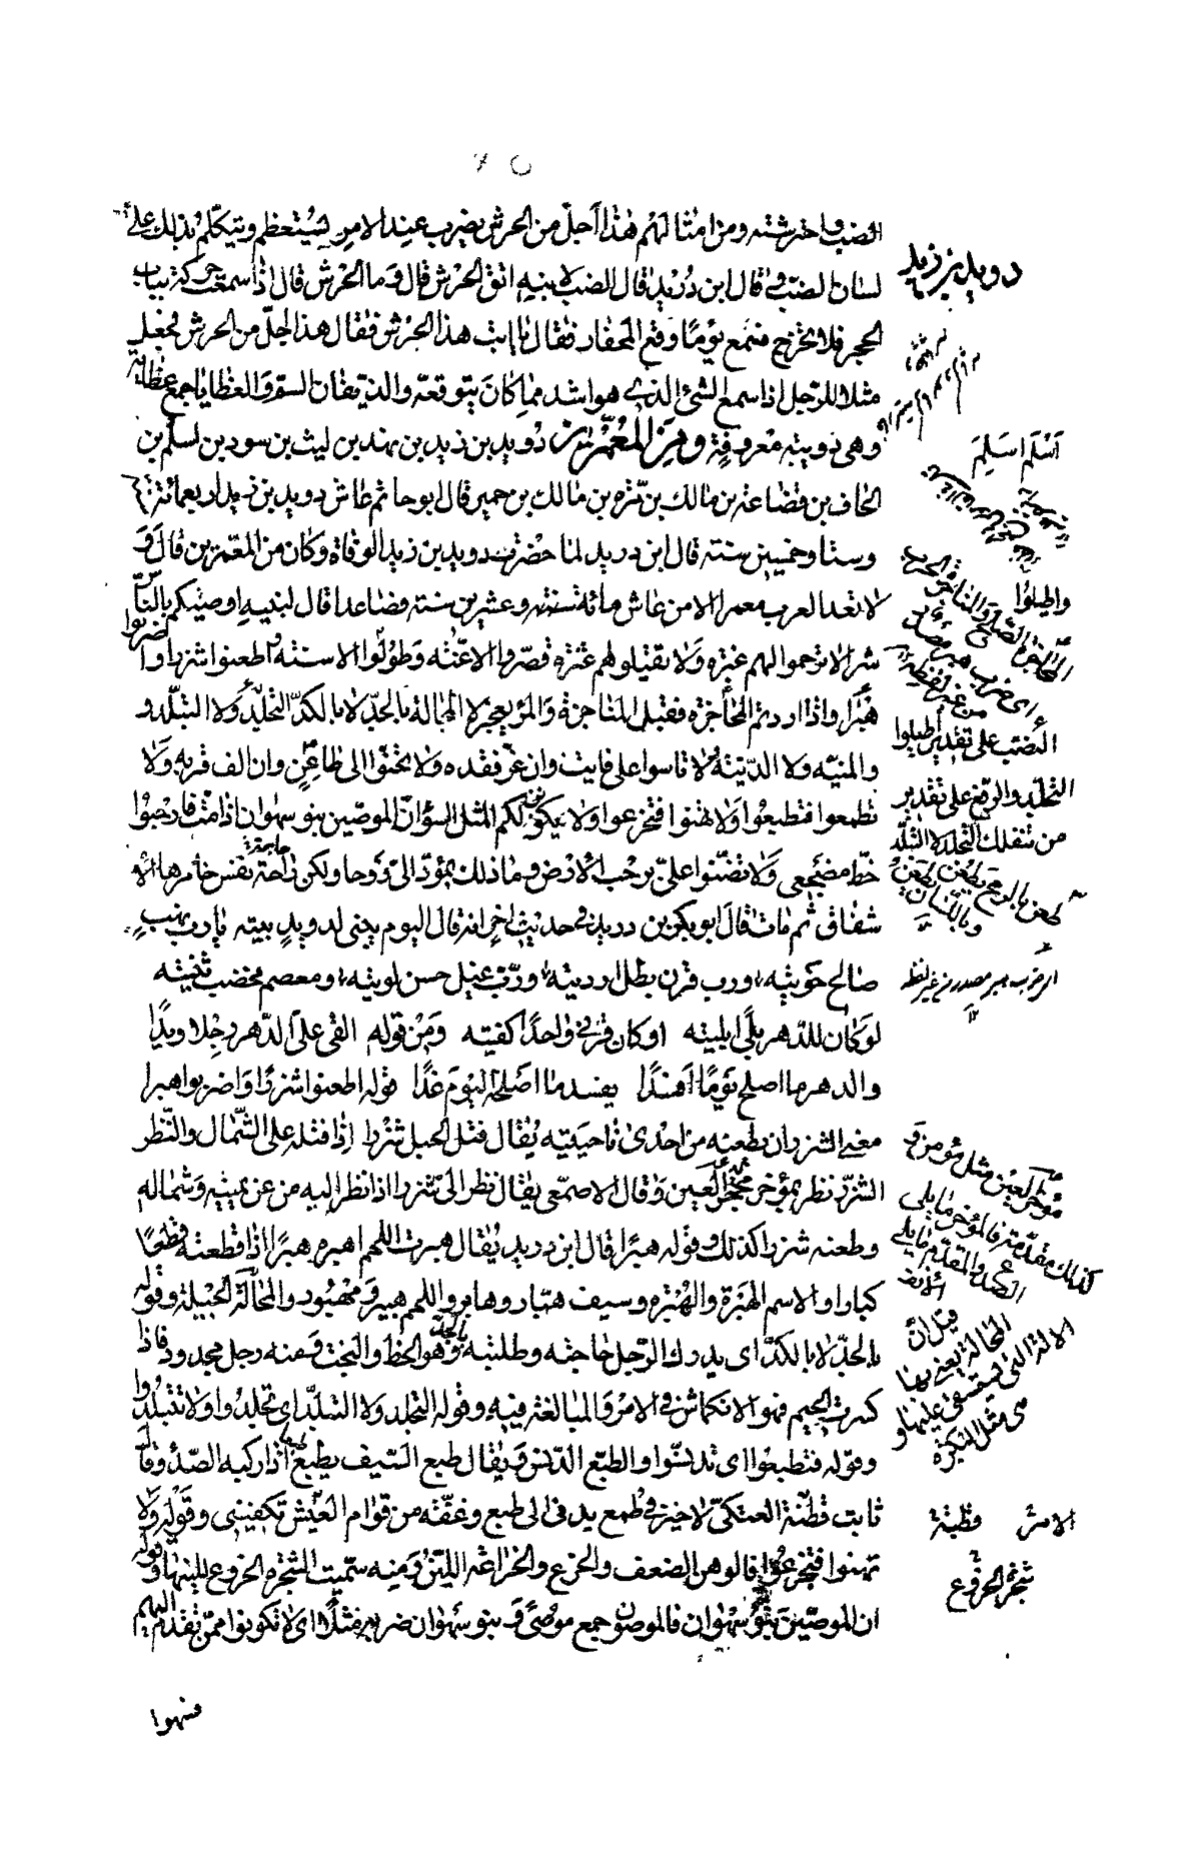 الضب واحترشته ومن امثالهم هذا اجلّ من الحرش يضرب عند الامر يستعظم ويتكلم بذلك على
لسان الضبّ قال ابن دُرَيد قال الضب لابنه اتق الحرش قال وما الحَرْش قال اذا سمعت حركة بباب
الحجر فلا تخرج فسمع يوما وقع المحفار فقال يا ابت هذا الحرش فقال هذا اجلّ من الحرش فجعل
مثلا للرّجل اذا سمع الشئ الذى هو اشد مما كان يتوقعه والذيفان السمّ والعظايا جمع عظاية
وهى دويبة معروفة ومن المُعمَّرين دُويد بن زيد بن نهد بن ليث بن سود بن اسلم بن
الحاف بن قضاعة بن مالك بن مرة بن مالك بن حمير قال ابو حاتم عاش دويد بن زيد اربعمائة
وستا وخمسين سنة قال ابن دريد لما حضرت دويد بن زيد الوفاة وكان من المعمّرين قال و
لا تعد العرب معمرا الا من عاش مائة سنة وعشرين سنة فصاعدا قال لبنيه اوصيكم بالناس
شرا لا ترحموا لهم عبرة ولا تقيلوا لهم عثرة قصّروا الاعنّة وطوّلوا الاسنة اطعنوا شزرا واضربوا
هَبْرا واذا اردتم المحاجزة فقبل المناجزة والمرء يعجز لا المحالة بالجدّ لا بالكدّ التجلّد ولا التبلّد و
والمنيّة ولا الدّنيّة ولا تاسوا على فايت وان عزّ فقده ولا تحنّوا الى ظاعن وان الف قربه ولا
تطمعوا فتطبعوا ولا تهنوا فتخرعوا ولا يكونن لكم المثل السوء انّ الموصّين بنو سهوان اذا متّ فارحبوا
خطّ مضجعى ولا تضنّوا علىّ برحب الارض وما ذلك بمؤدّ الىّ روحا ولكن راحة نفس خامرها الا
شفاق ثم مات قال ابو بكر بن دريد فى حديث اخر انه قال اليوم يبنى لدويد بيته يا رب نهب
صالح حويته ورب قرن بطل ارديته وربّ غيل حسن لويته ومعصم مخضب ثنيته
لو كان للدهر بلًى ابليته او كان قرنى واحدًا كفيته ومن قوله القى علىّ الدّهر رجلا ويدًا
والدهر ما اصلح يومًا افسدا يفسد ما اصلحه اليوم غدًا قوله اطعنوا شزرًا واضربوا هبرا
معنى الشزر ان يطعنه من احدى ناحيتيه يقال فتل الحبل شزرا اذا فتله على الشّمال والنّظر
الشزر نظر بمؤخر العين وقال الاصمعى يقال نظر الىّ شزرا اذا نظر اليه من عن يمينه وشماله
وطعنه شزرا كذلك وقوله هبرًا قال ابن دريد يُقال هبرت اللحم اهبره هبرًا اذا قطعته قطعًا
كبارا والاسم الهَبْرة والهُبْرة وسيف هبّار وهابر واللحم هبير ومهبور والمحالة الحيلة وقوله
بالجدّ لا بالكدّ اى يدرك الرّجل حاجته وطلبته بالجدّ وهو الحظ والبخت ومنه رجل مجدود فاذا
كسرت الجيم فهو الانكماش فى الامر والمبالغة فيه وقوله التجلد ولا التبلّد اى تجلدوا ولا تتبلدوا
وقوله فتطبعوا اى تدنسوا والطبع الدّنس ويقال طبع السّيف يطبع طبعا اذا ركبه الصّدأ قال
ثابت قطنة العتكىّ لا خير فى طمع يدنى الى طبع وعفّة من قوام العيش تكفينى وقوله ولا
تهنوا فتخرعوا فالوهن الضعف والخرع والخراعة اللين ومنه سمّيت الشجرة الخروع للينها وقوله
ان الموصّين بنو سهوان فالموصون جمع موصى وبنو سهوان ضربه مثلا اى لا تكونوا ممن تقدم اليهم
فسهوا
دويد بن زيد
اَسْلَم اسَلِم
واطيلوا
النصب على تقدير اطيلوا
التجلد والرفع على تقدير
من شغلك التجلد لا التبلّد
اى ضرب هبر مصدر من غير لفظه
مؤخر العين مثل مؤمن و
كذلك مقدّمه فالمؤخر ما يلى
الصدغ والمقدّم ما يلى
الانف
قيل انّ
المحالة يعنى بها
الالة التى يستقى عليها و
هى مثل البكرة
الامثل قطنة
شجرة الخروع